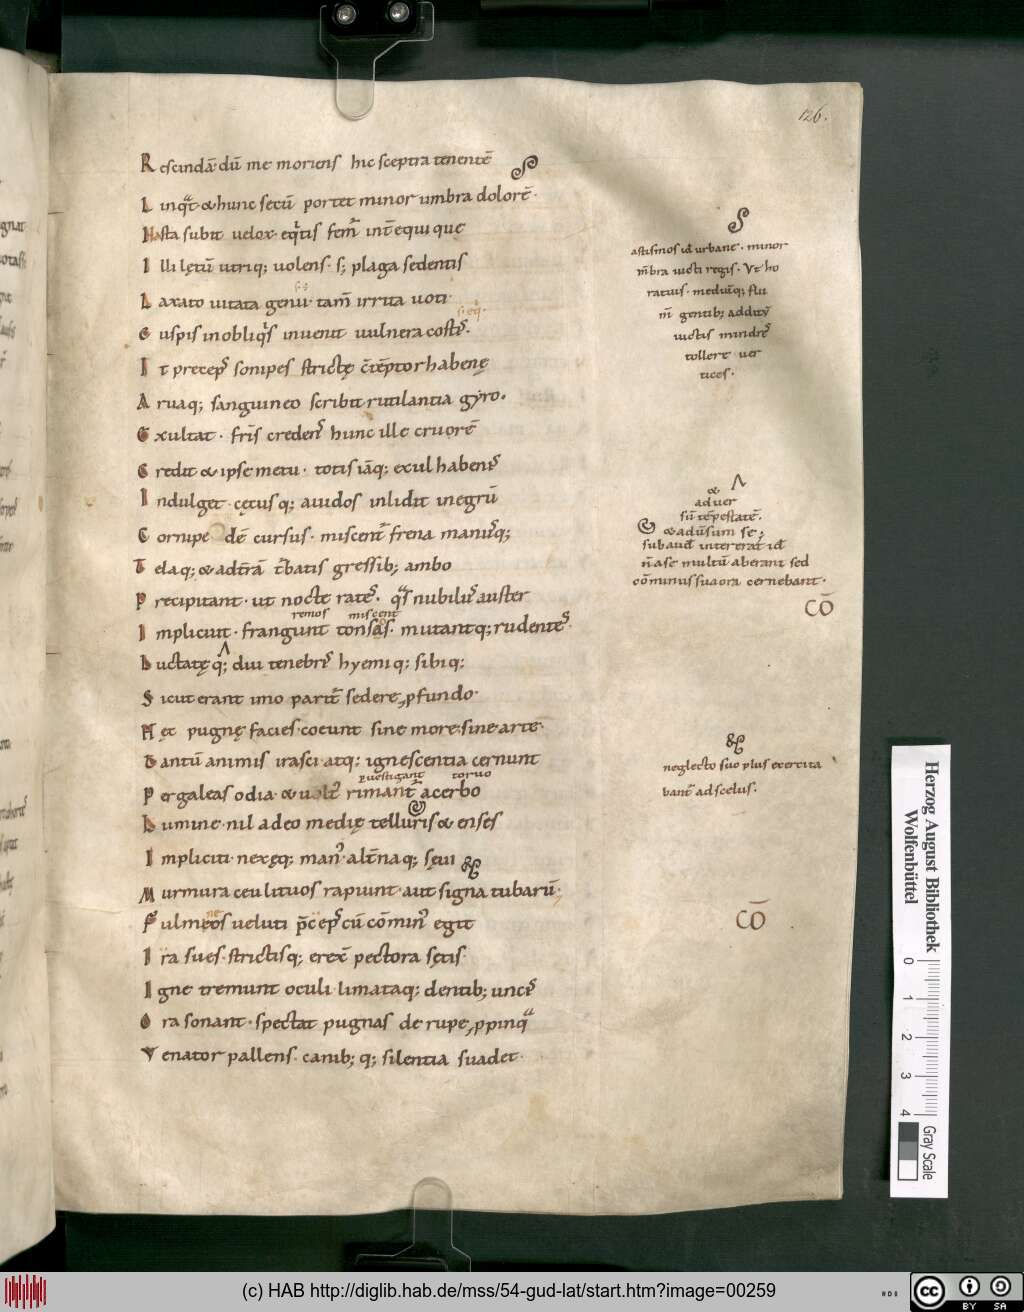 126.
Rescindā dū me moriens hic sceptra tenentē
Linqt̄ & hunc secū portet minor umbra dolorē.
Hasta subit uelox equitis femꝰ int̄ equique
Illi lętū utriq; uolens s; plaga sedentis
Laxato uitata genu tam̄ irrita uoti
Cuspis in obliqis inuenit uulnera costis.
It pręceps sonipes strictę c̄tēptor habenę
Aruaq; sanguineo scribit rutilantia gyro.
Exultat fr̄is credens hunc ille cruorē
Credit & ipse metu totis iāq; exul habenis
Indulget cęcusq; auidos inlidit in egrū
Corripe dē cursus miscent̄ frena manusq;
Telaq; & ad t̄rā t̄batis gressib; ambo
Precipitant ut nocte rates qs nubilus auster
remos miscent
Implicuit frangunt tonsas mutantq; rudentes
Luctatęq; diu tenebris hyemiq; sibiq;
Sicut erant imo parit̄ sedere pfundo
Hęc pugnę facies coeunt sine more sine arte
Tantū animis irasci atq; ignescentia cernunt
puestigant toruo
Per galeas odia & uolt̄ rimant̄ acerbo
Lumine nil adeo medię telluris & enses
Impliciti nexęq; manꝰ alt̄naq; sęui
Murmura ceu lituos rapiunt aut signa tubarū;
Fulmeos ueluti p̄ceps cū cōminꝰ egit
Ira sues strictisq; erex̄ pectora sętis
Igne tremunt oculi limataq; dentib; uncis
Ora sonant spectat pugnas de rupe ppinqa
Venator pallens canib;q; silentia suadet
minor
m̄bra uicti regis. Vt ho
ratius. meduq; flu
m̄ gentib; additū
uictis minores
tollere uer
tices.
&
aduer
sū tēpestatē.
& aduūsum se;
n̄ a se multū aberant sed
cōminus sua ora cernebant.
CŌ
neglecto suo plus exercita
bant̄ ad scelus.
CŌ
Herzog August Bibliothek
Wolfenbüttel
0 1 2 3 4
Gray Scale
(c) HAB http://diglib.hab.de/mss/54-gud-lat/start.htm?image=00259
cc BY SA